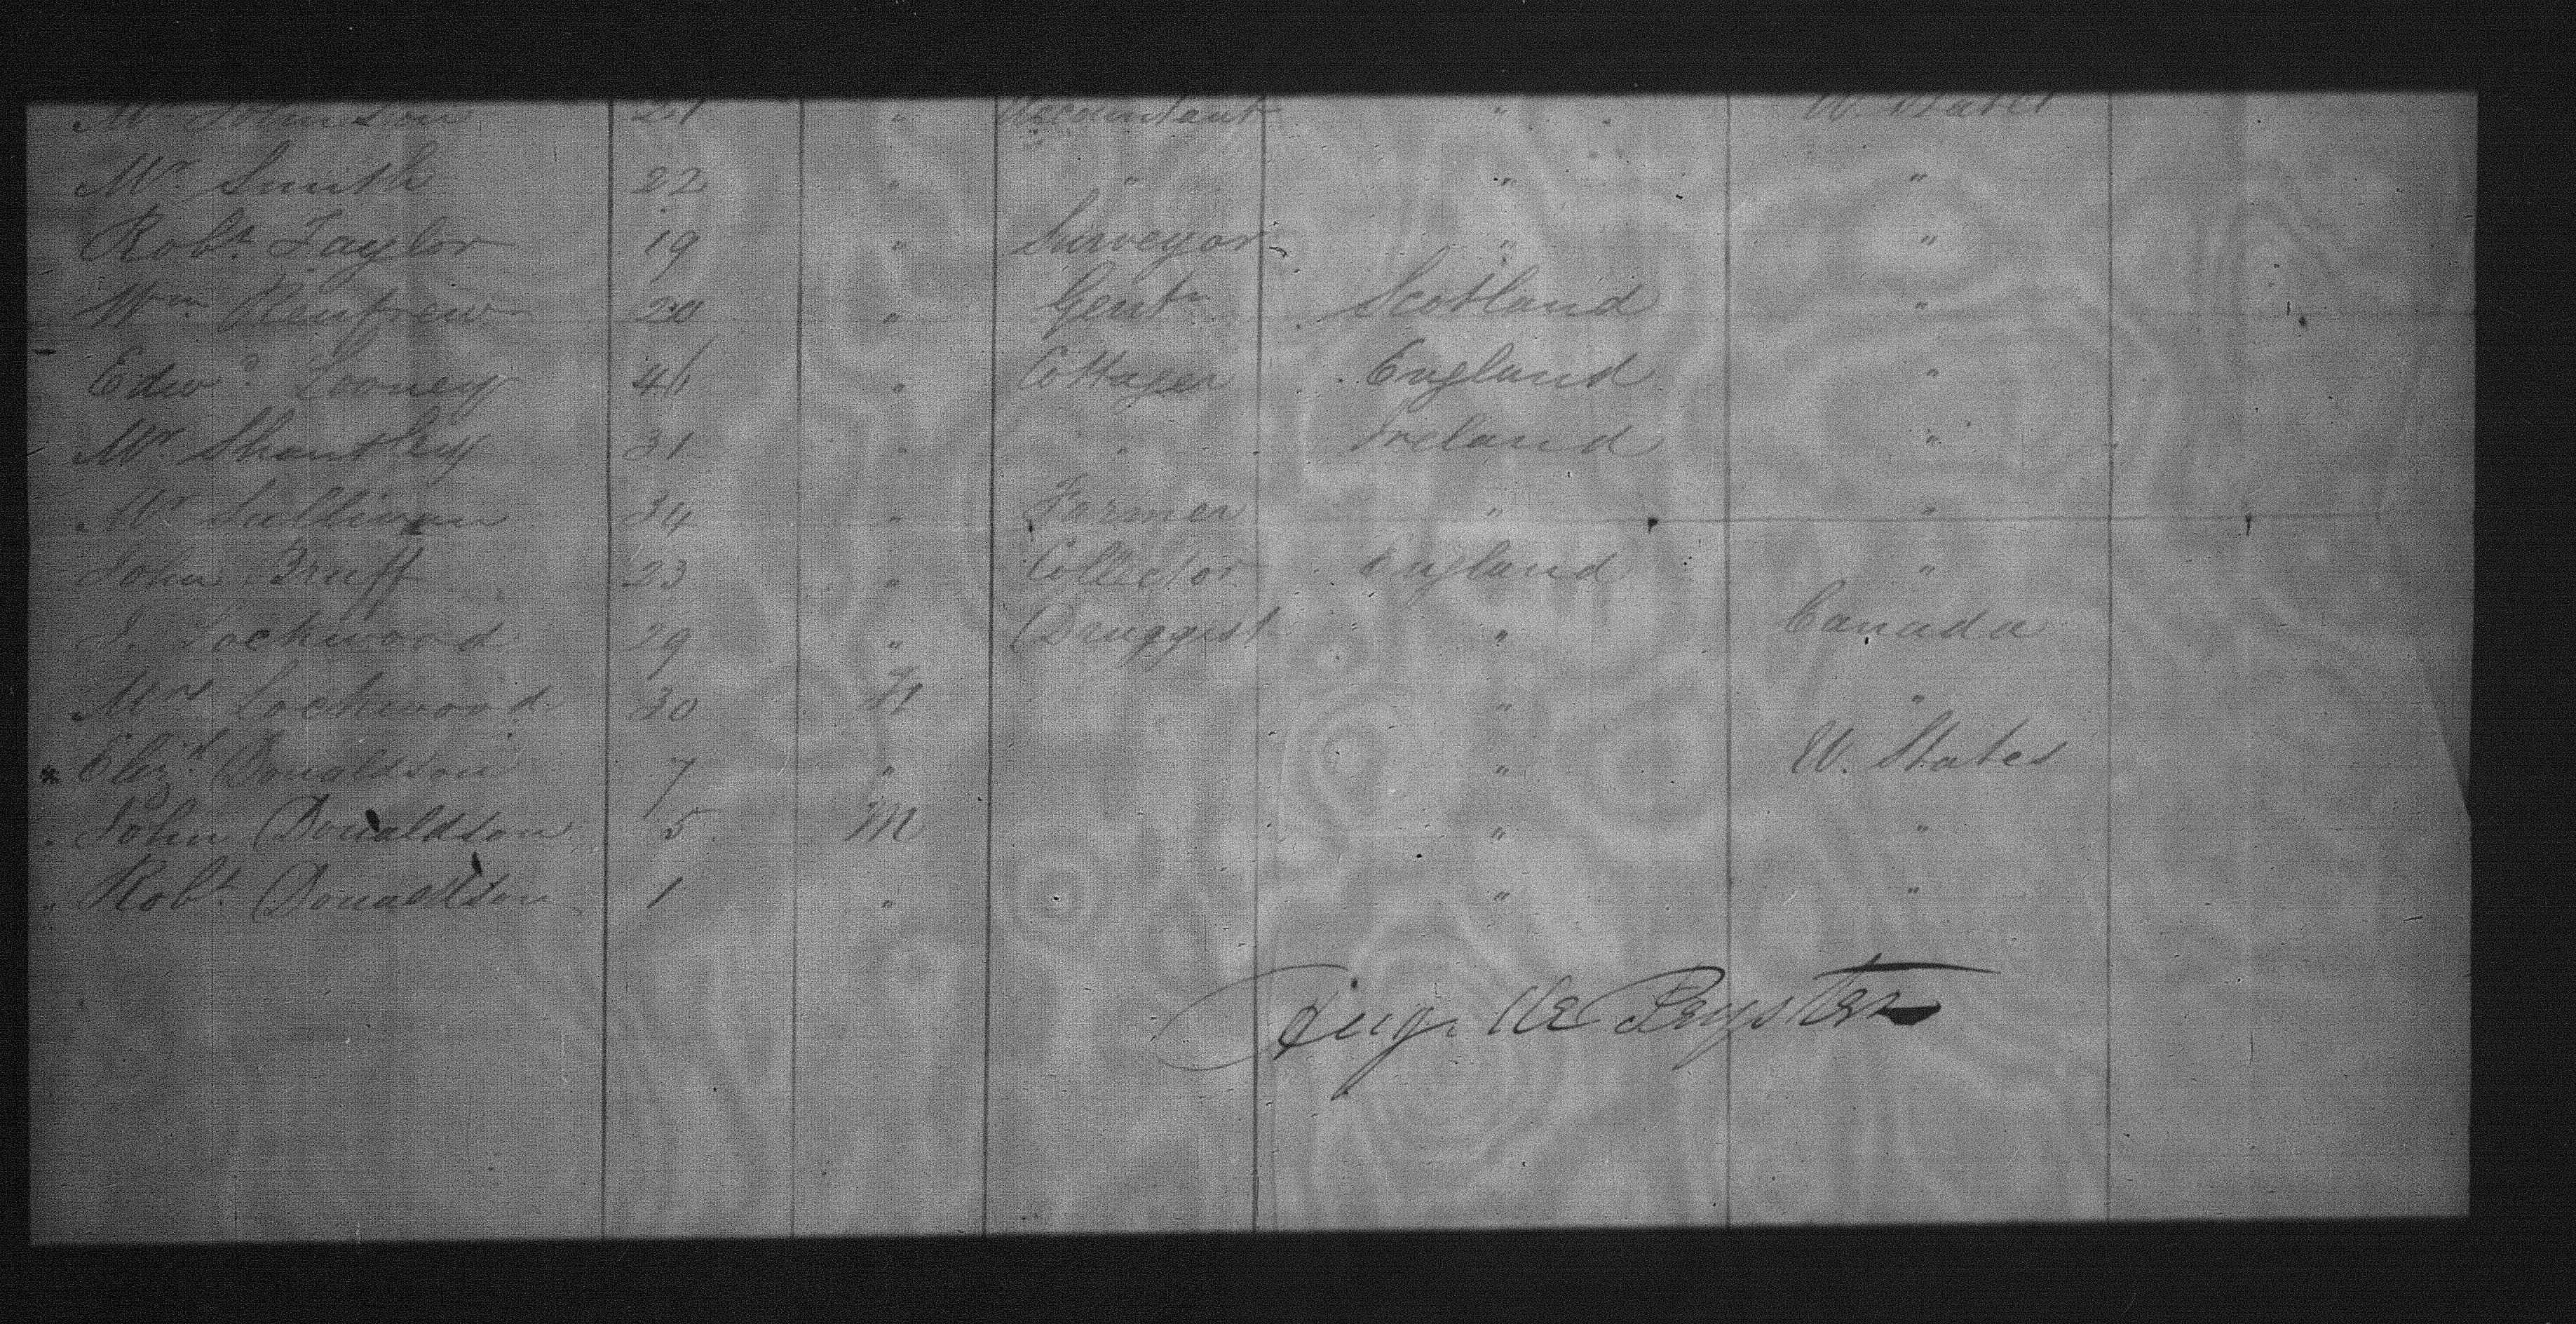 Mr Johnson 21 " Accountant " U. States
Mr. Smith 22 " " " "
Robt. Taylor 19 " Surveyor " "
Wm Renfrew 20 " Gentn Scotland "
Edwd. Looney 46 " Cottager England "
Mr. Shantley 31 " " Ireland "
Mr Sullivan 34 " Farmer " "
John Bruff 23 " Collector England "
J. Lockwood 29 " Druggist " Canada
Mrs Lockwood 30 F " "
" Elizth Donaldson 7 " " U. States
" John Donaldson 5 M " "
" Robt. Donaldson 1 " " "
Aug. De Peyster